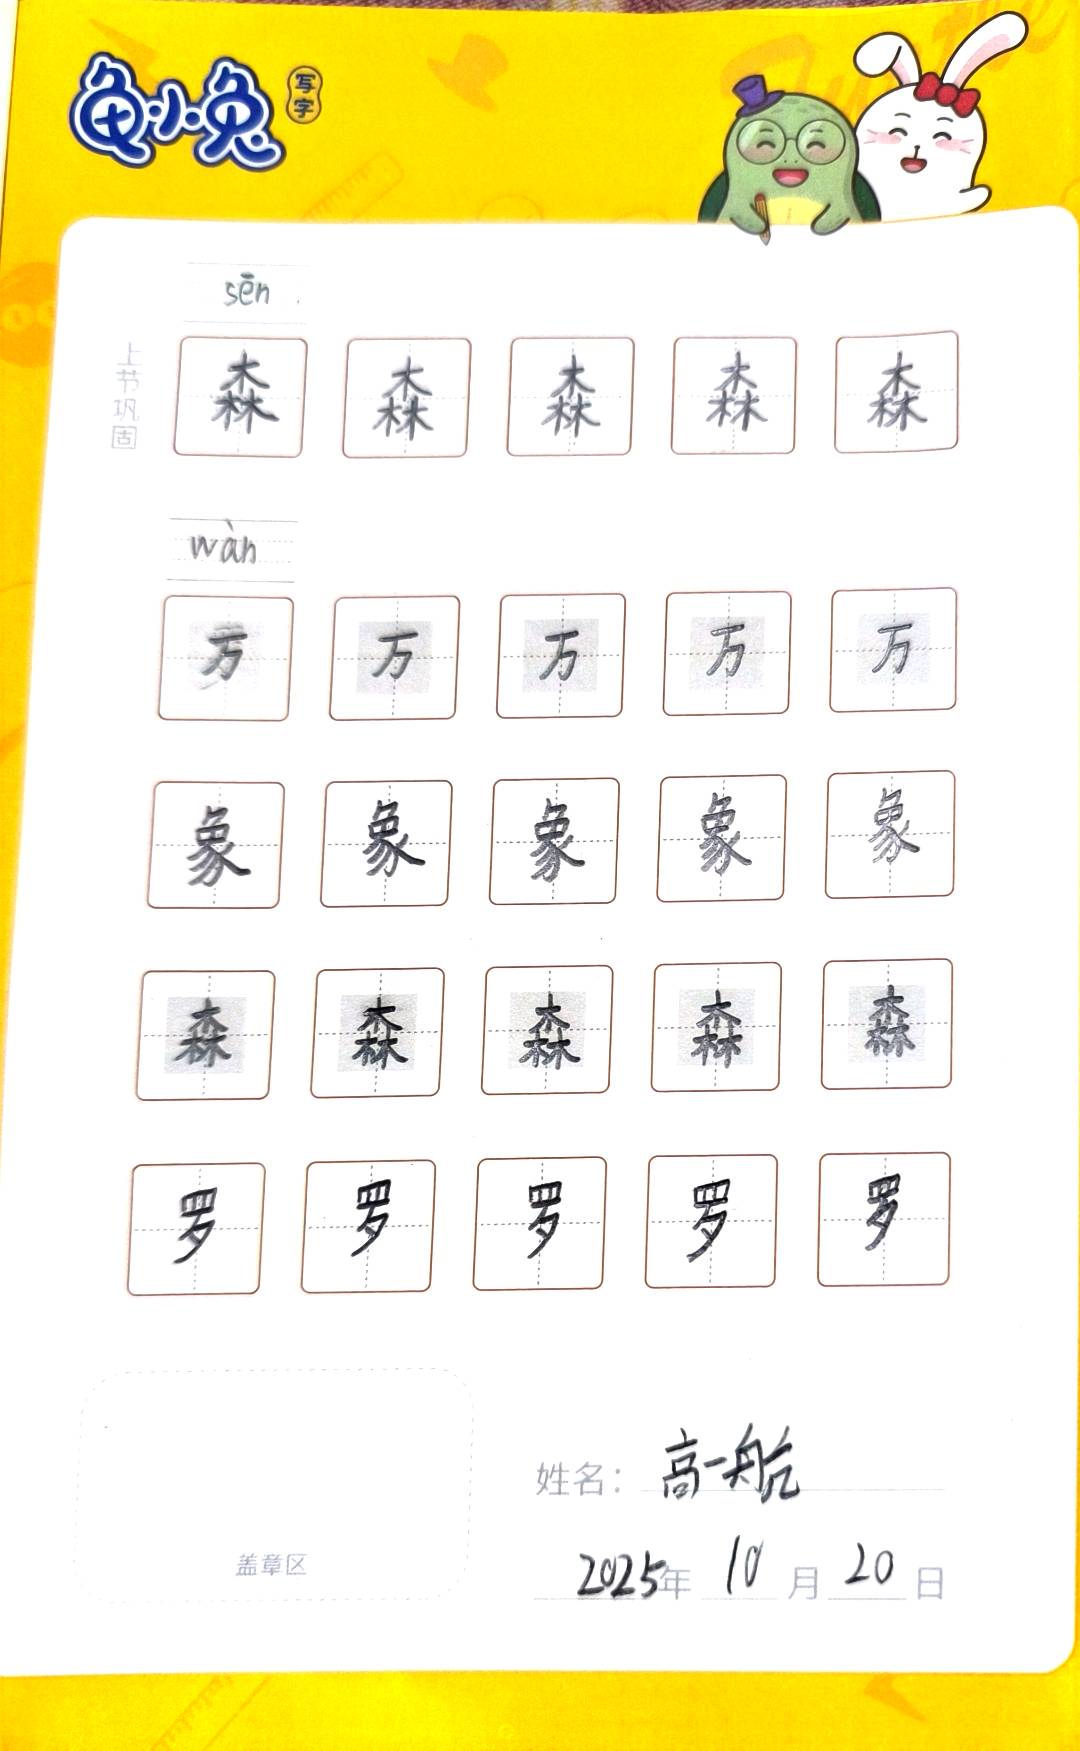 龟小兔
写字
sēn
上节巩固
森 森 森 森 森
wàn
万 万 万 万 万
象 象 象 象 象
森 森 森 森 森
罗 罗 罗 罗 罗
盖章区
姓名：高一航
2025年 10 月 20 日